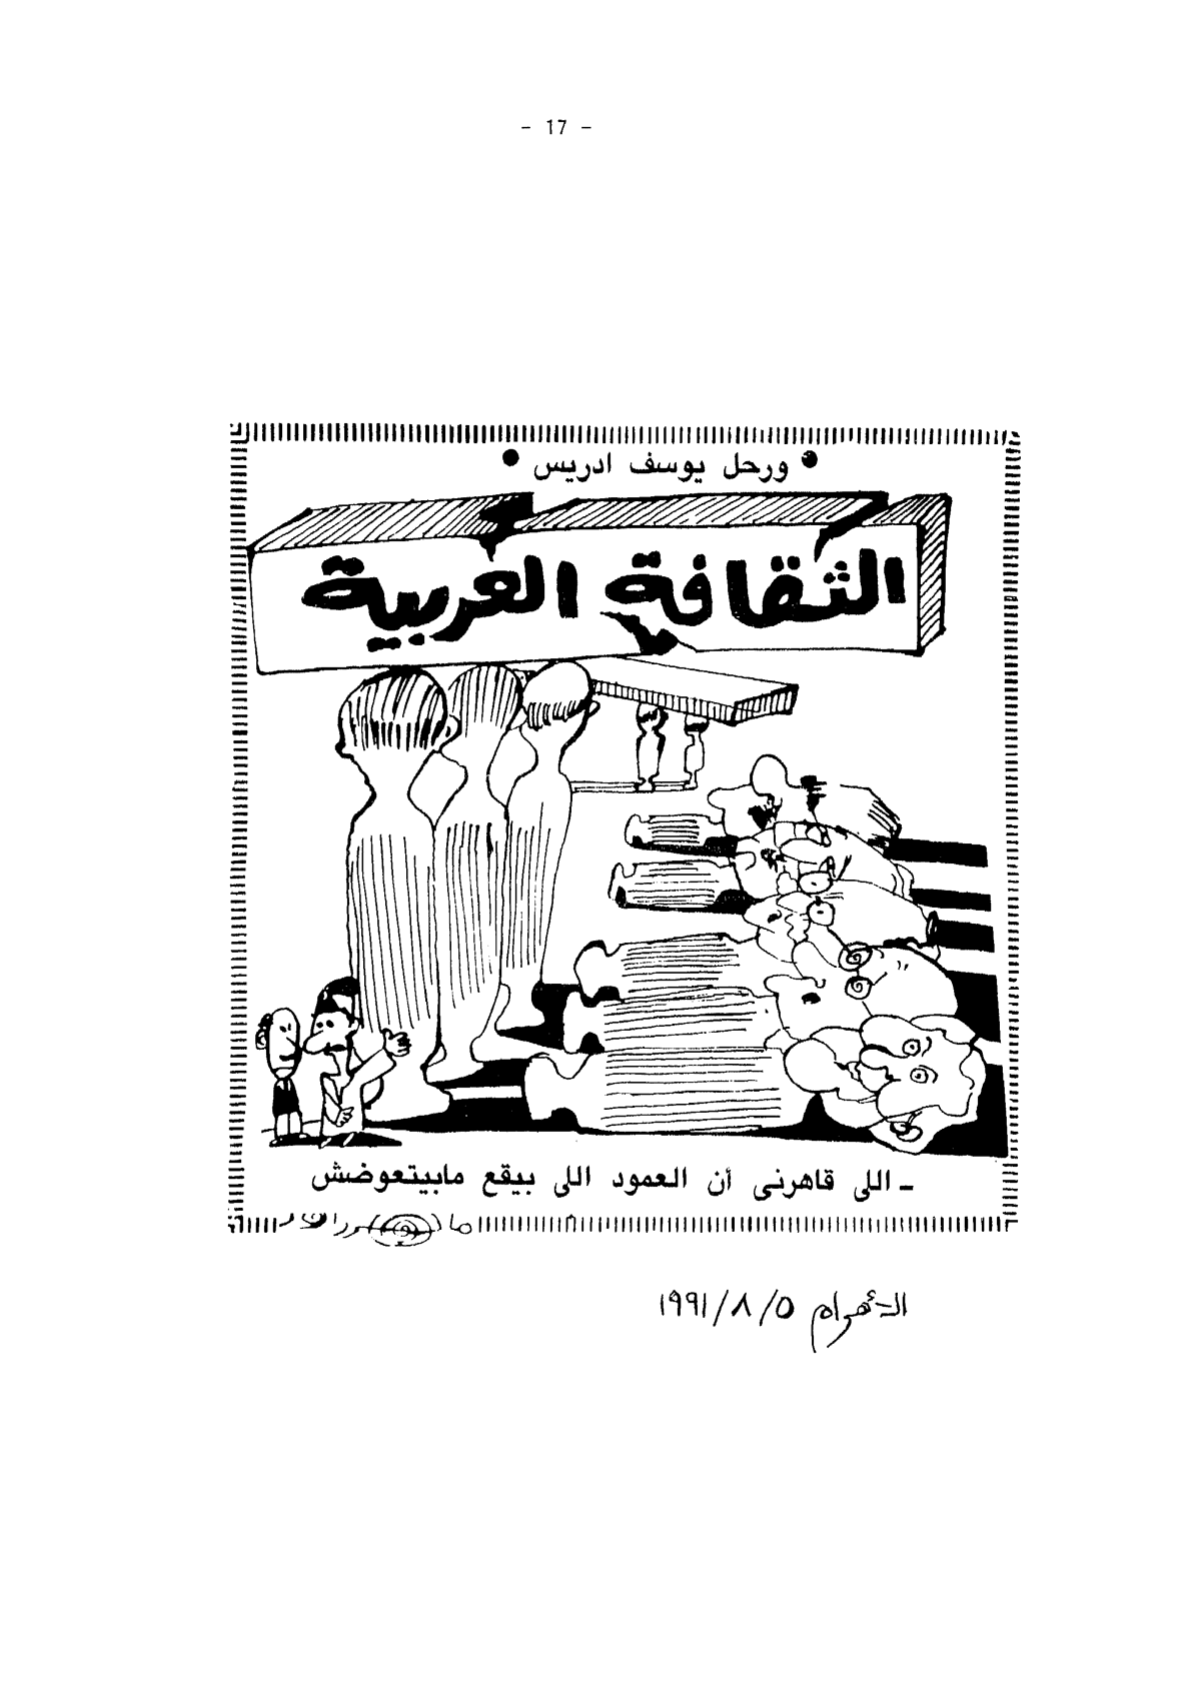 - 17 -
• ورحل يوسف ادريس •
الثقافة العربية
ـ اللى قاهرنى أن العمود اللى بيقع مابيتعوضش
الأهرام ٥/٨/١٩٩١